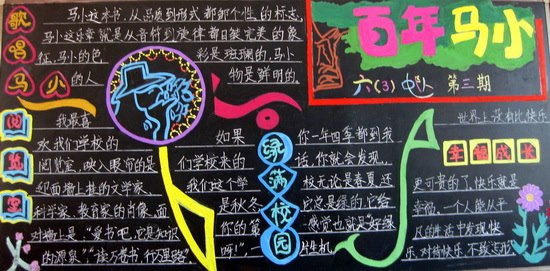 百年马小
六(3)中队 第三期
歌唱马小
马小这本书,从品质到形式都那个性的标志,
马小这乐章就是从音符到旋律都日臻完美的象
征,马小的色彩是斑斓的,马小
的人物是鲜明的。
阅览室
我最喜
欢我们学校的
阅览室,映入眼帘的是
迎面墙上挂的文学家、
科学家、教育家的肖像,面
对墙上是“爱书吧,它是知识
的源泉”“读万卷书,行万里路”
绿满校园
如果你一年四季都到我
们学校来的话,你就会发现,
我们这个学校无论是春夏还
是秋冬,它总是绿的,它给
你的第一感觉也就是“好绿
呀!”,生机
幸福成长
世界上没有比快乐
更可贵的了,快乐就是
幸福,一个人能从平
凡的生活中发现快
乐,